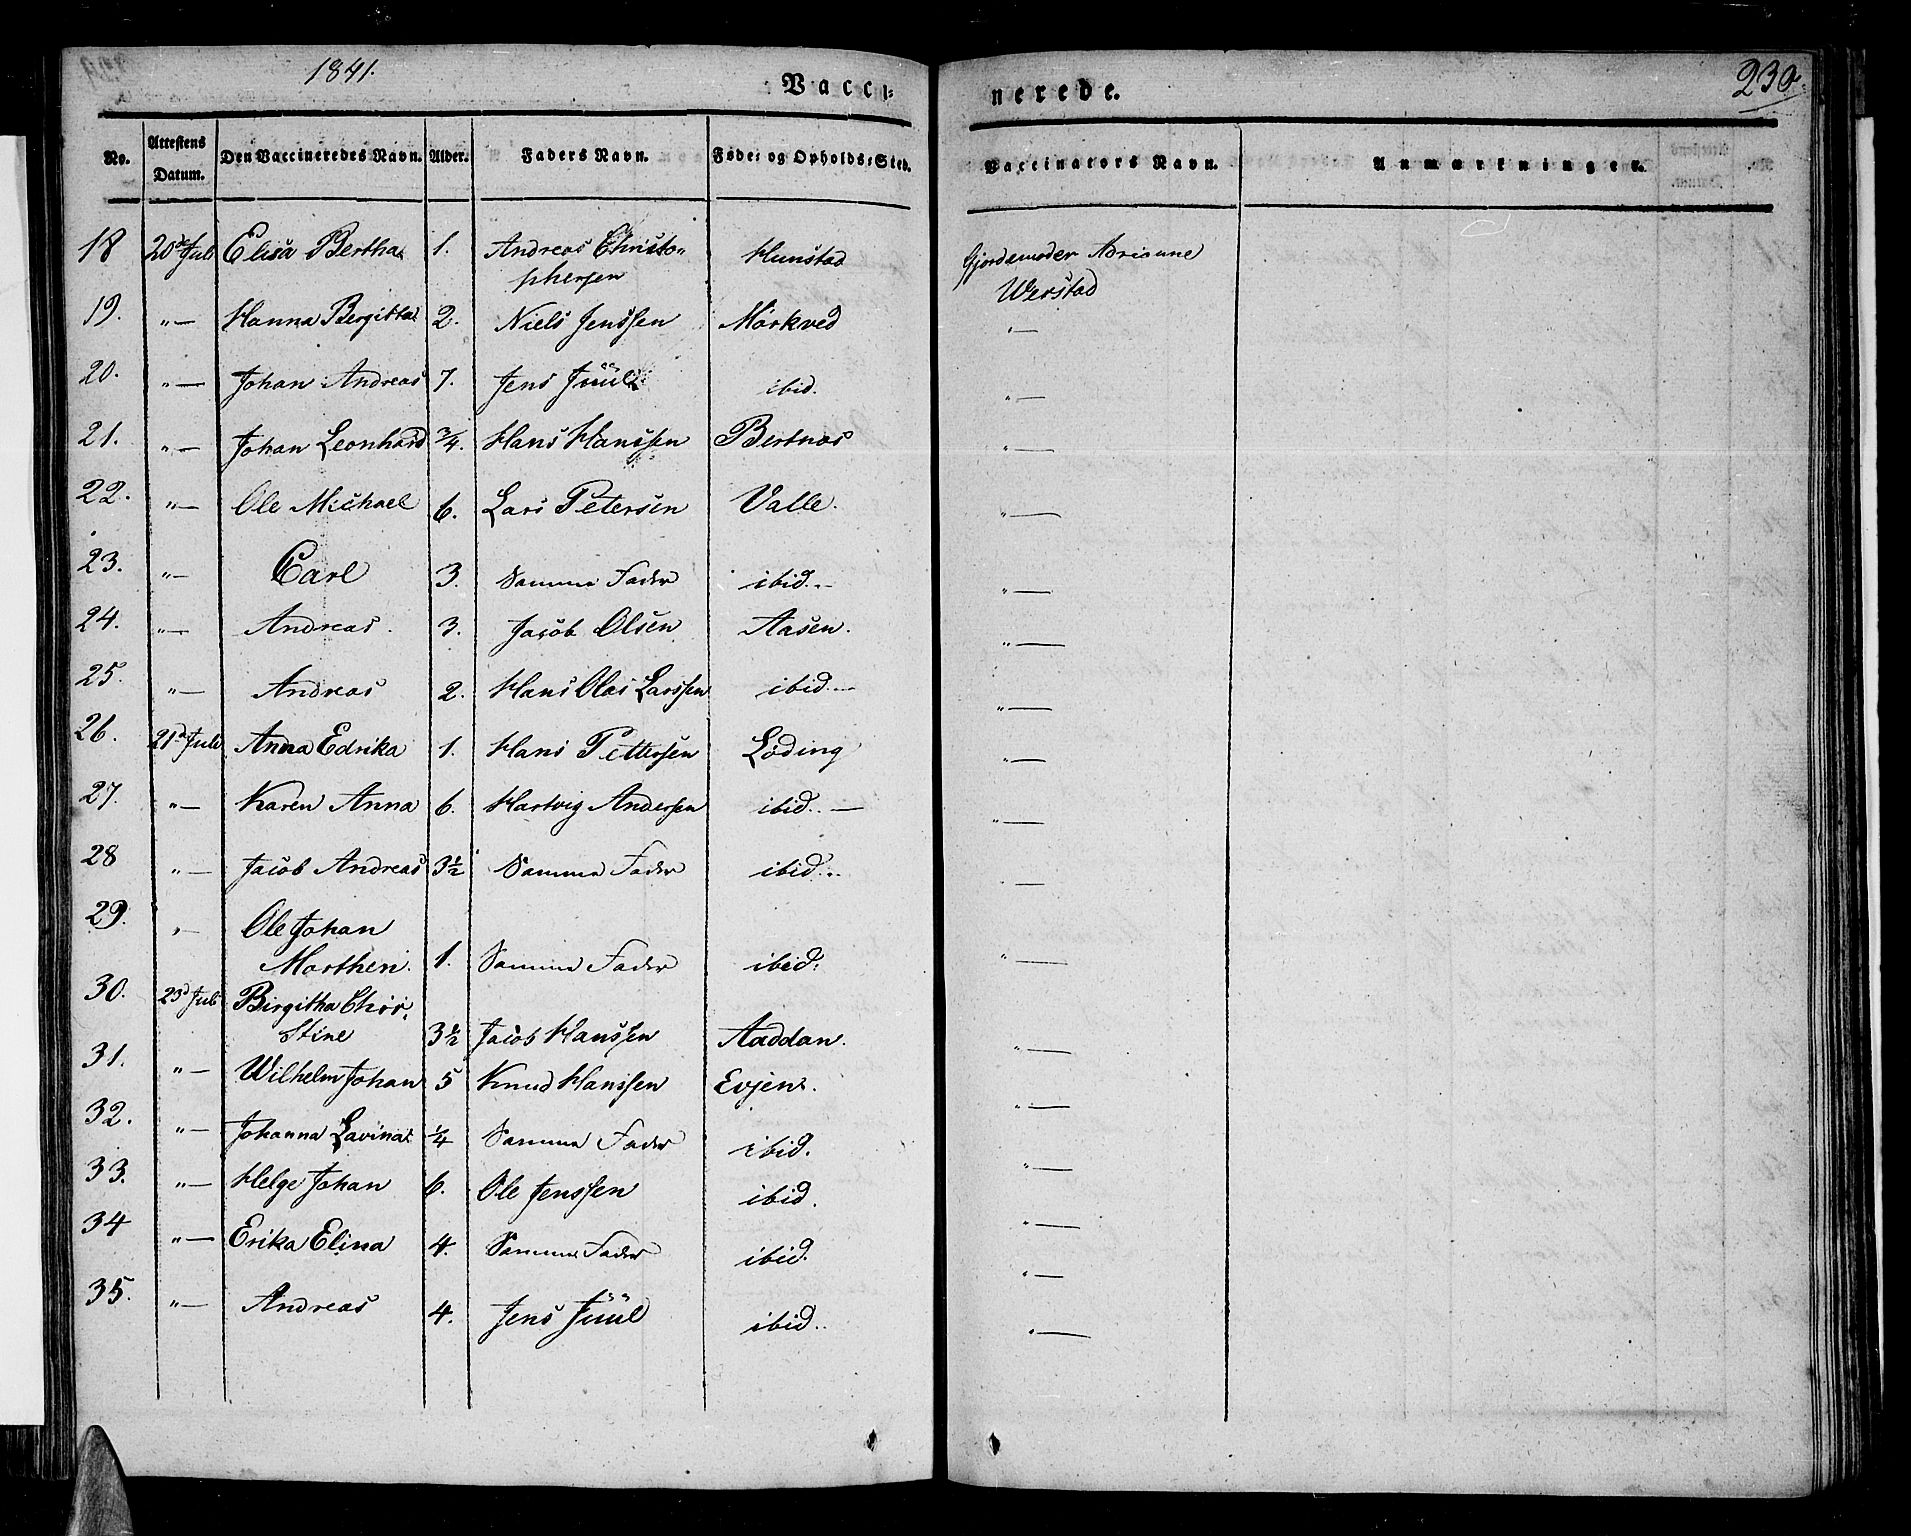 1841.
Vacci=
nerede.
230
No. Attestens Datum. Den Vaccineredes Navn. Alder. Faders Navn. Føde= og Opholds=Sted. Vaccinators Navn. Anmærkninger.
18 20d Juli Elisa Bertha 1. Andreas Christo= Hunstad Gjordemoder Adrianne
phersen Werstad
19. "— Hanna Bergitta 2. Niels Jenssen Mørkved "—
20. "— Johan Andreas 7. Jens Juul ibid. "—
21. "— Johan Leonhard 3/4. Hans Hanssen Bertnæs "—
22. "— Ole Michael 6. Lars Petersen Valle. "—
23. "— Carl 3. Samme Fader ibid. "—
24. "— Andreas. 3. Jacob Olsen Aasen. "—
25. "— Andreas 2. Hans Olai Larssen ibid. "—
26. 21d Juli Anna Edrika 1. Hans Pettersen Løding "—
27. "— Karen Anna 6. Hartvig Andersen ibid. — "—
28 "— Jacob Andreas 3½ Samme Fader ibid. "—
29. "— Ole Johan
Marthin. 1. Samme Fader ibid. "—
30. 23d Juli Birgitha Chri=
stine 3½ Jacob Hanssen Aaddan. "—
31. "— Wilhelm Johan 5 Knud Hanssen Evjen. "—
32. "— Johanna Lavina 1/4 Samme Fader ibid. "—
33. "— Helge Johan 6. Ole Jenssen ibid. "—
34 "— Erika Elina 4. Samme Fader ibid. "—
35. "— Andreas 4. Jens Juul ibid. "—